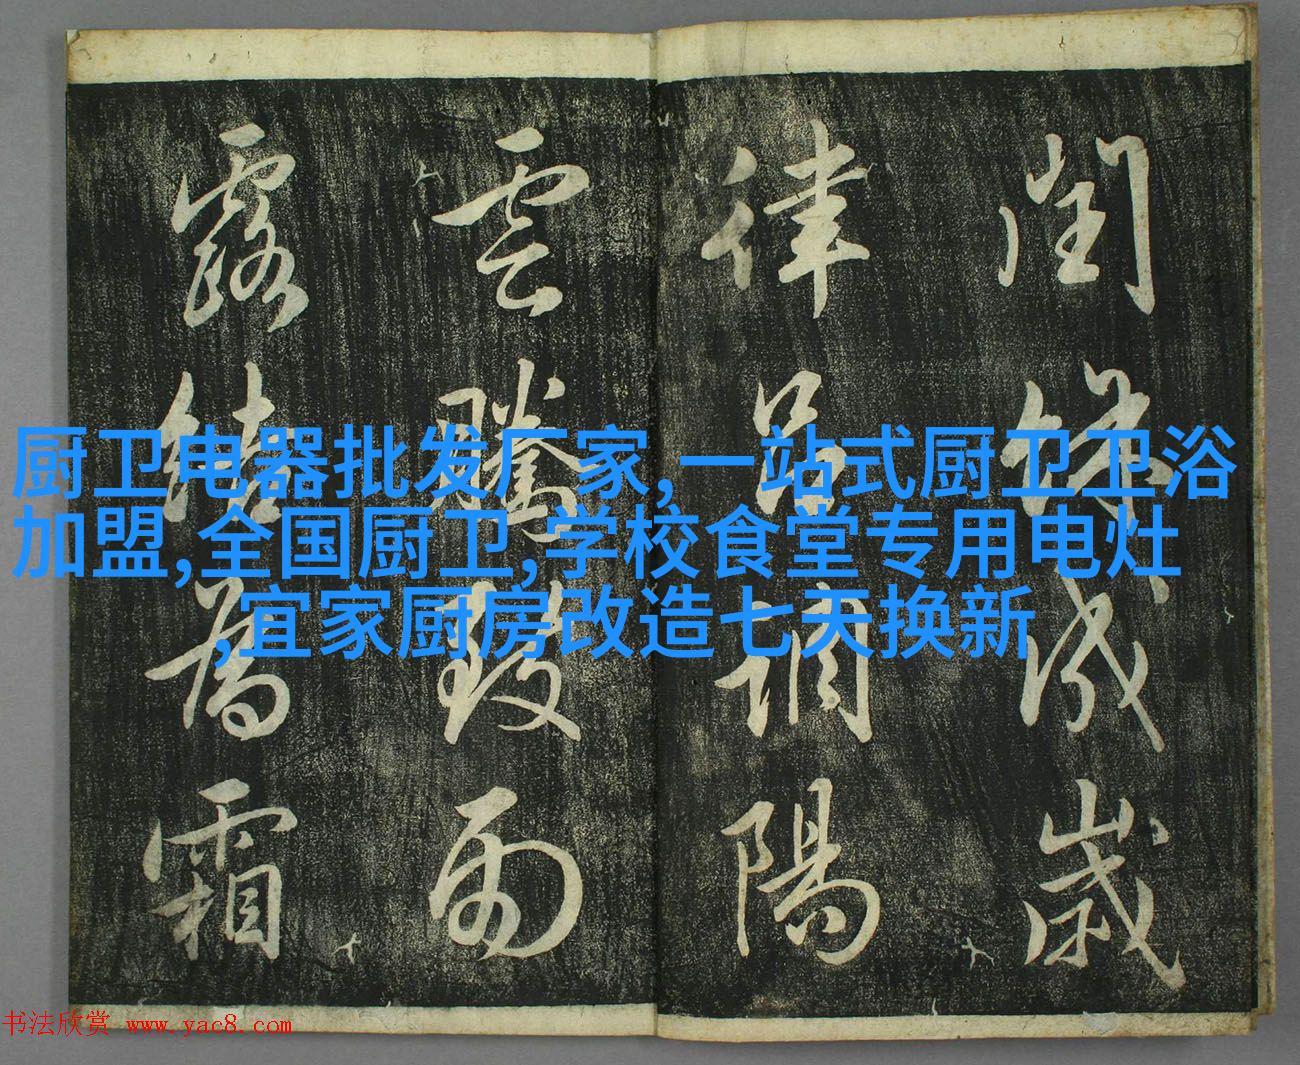 閏餘成歲
律呂調陽
雲騰致雨
露結為霜
厨卫电器批发厂家,一站式厨卫卫浴
加盟,全国厨卫,学校食堂专用电灶
,宜家厨房改造七天换新
书法欣赏 www.yac8.com